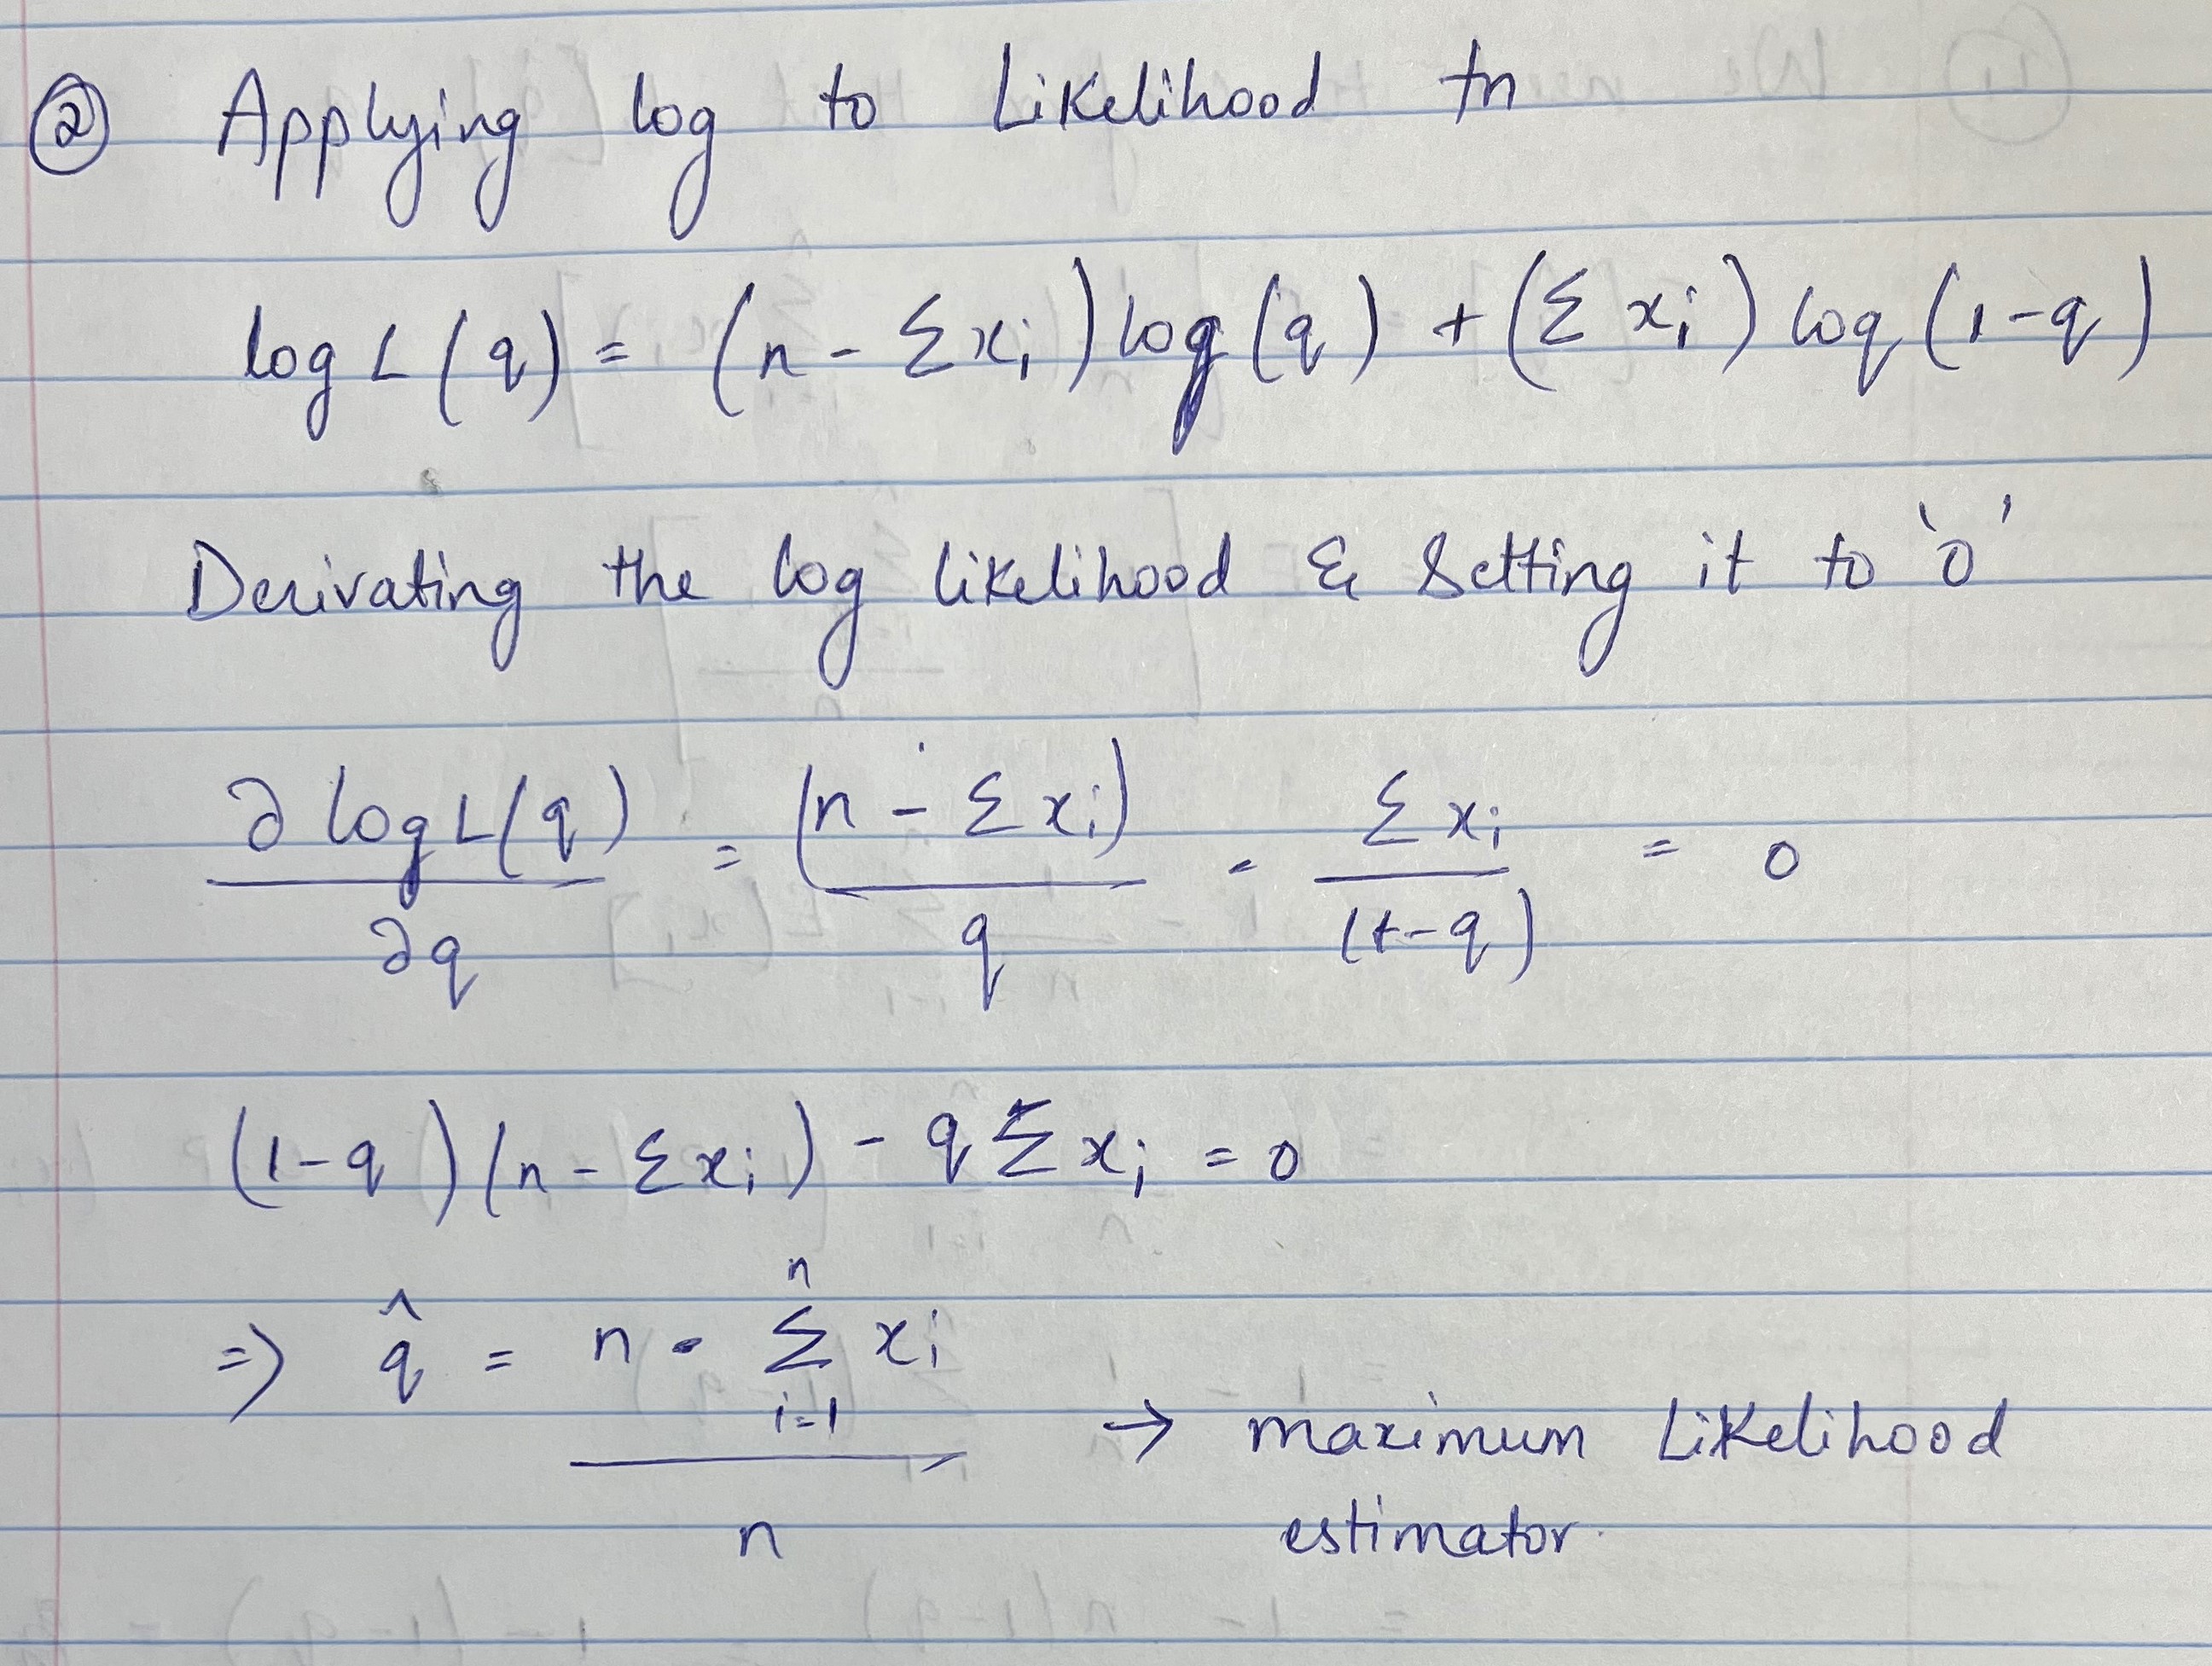 ② Applying log to Likelihood fn
log L(q) = (n - Σxi) log(q) + (Σ xi) log(1-q)
Derivating the log likelihood & Setting it to '0'
∂ log L(q) / ∂q = (n - Σ xi) / q - Σ xi / (1-q) = 0
(1-q)(n - Σxi) - q Σ xi = 0
=> q̂ = (n - Σ_{i=1}^{n} xi) / n → maximum Likelihood
estimator.